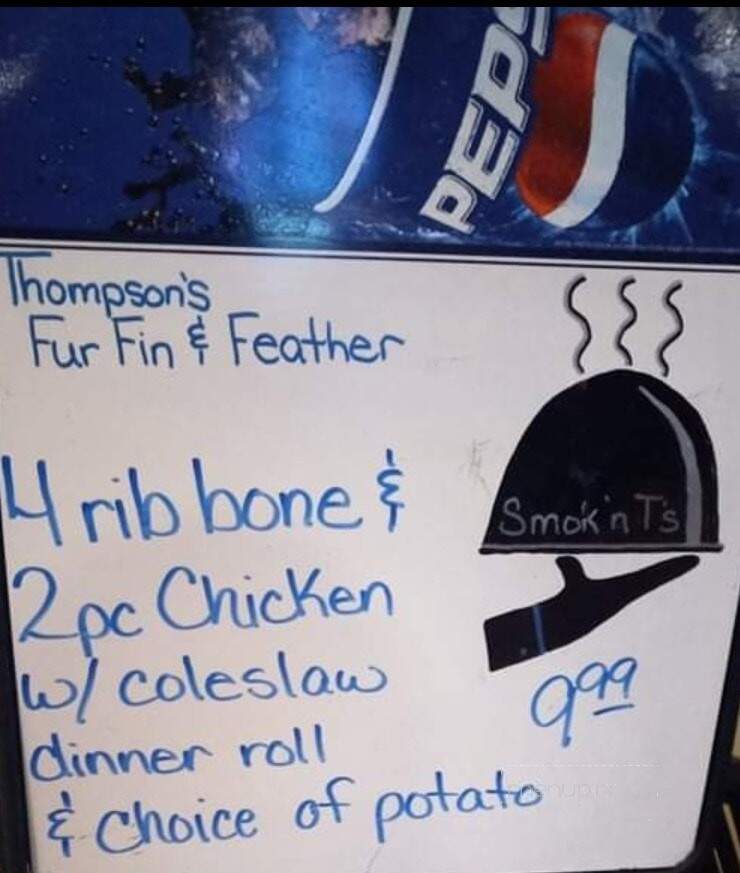 PEPS
Thompson's
Fur Fin & Feather
4 rib bone &
2pc Chicken
w/ coleslaw
dinner roll
& Choice of potato
Smok'n T's
9.99